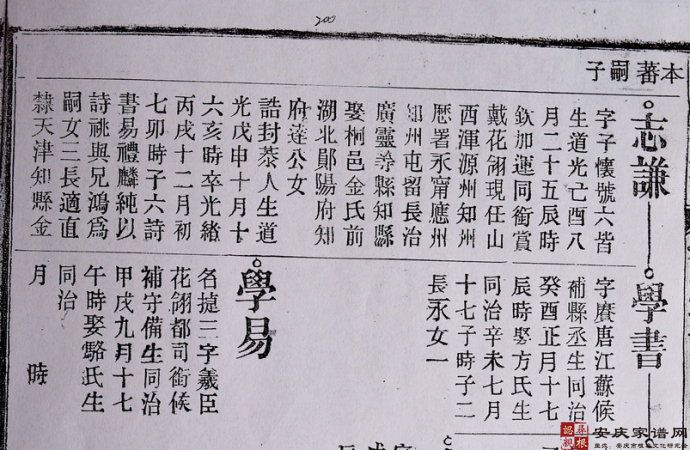 200
本蕃嗣子
志謙
字子懷號六皆
生道光己酉八
月二十五辰時
欽加運同銜賞
戴花翎現任山
西渾源州知州
歷署永甯應州
知州屯留長治
廣靈等縣知縣
娶桐邑金氏前
湖北鄖陽府知
府達公女
誥封恭人生道
光戊申十月十
六亥時卒光緒
丙戌十二月初
七卯時子六詩
書易禮麟純以
詩祧與兄鴻為
嗣女三長適直
隸天津知縣金
學書
字賡唐江蘇候
補縣丞生同治
癸酉正月十七
辰時娶方氏生
同治辛未七月
十七子時子二
長永女一
學易
名捷三字羲臣
花翎都司銜候
補守備生同治
甲戌九月十七
午時娶駱氏生
同治
月 時
安庆家谱网